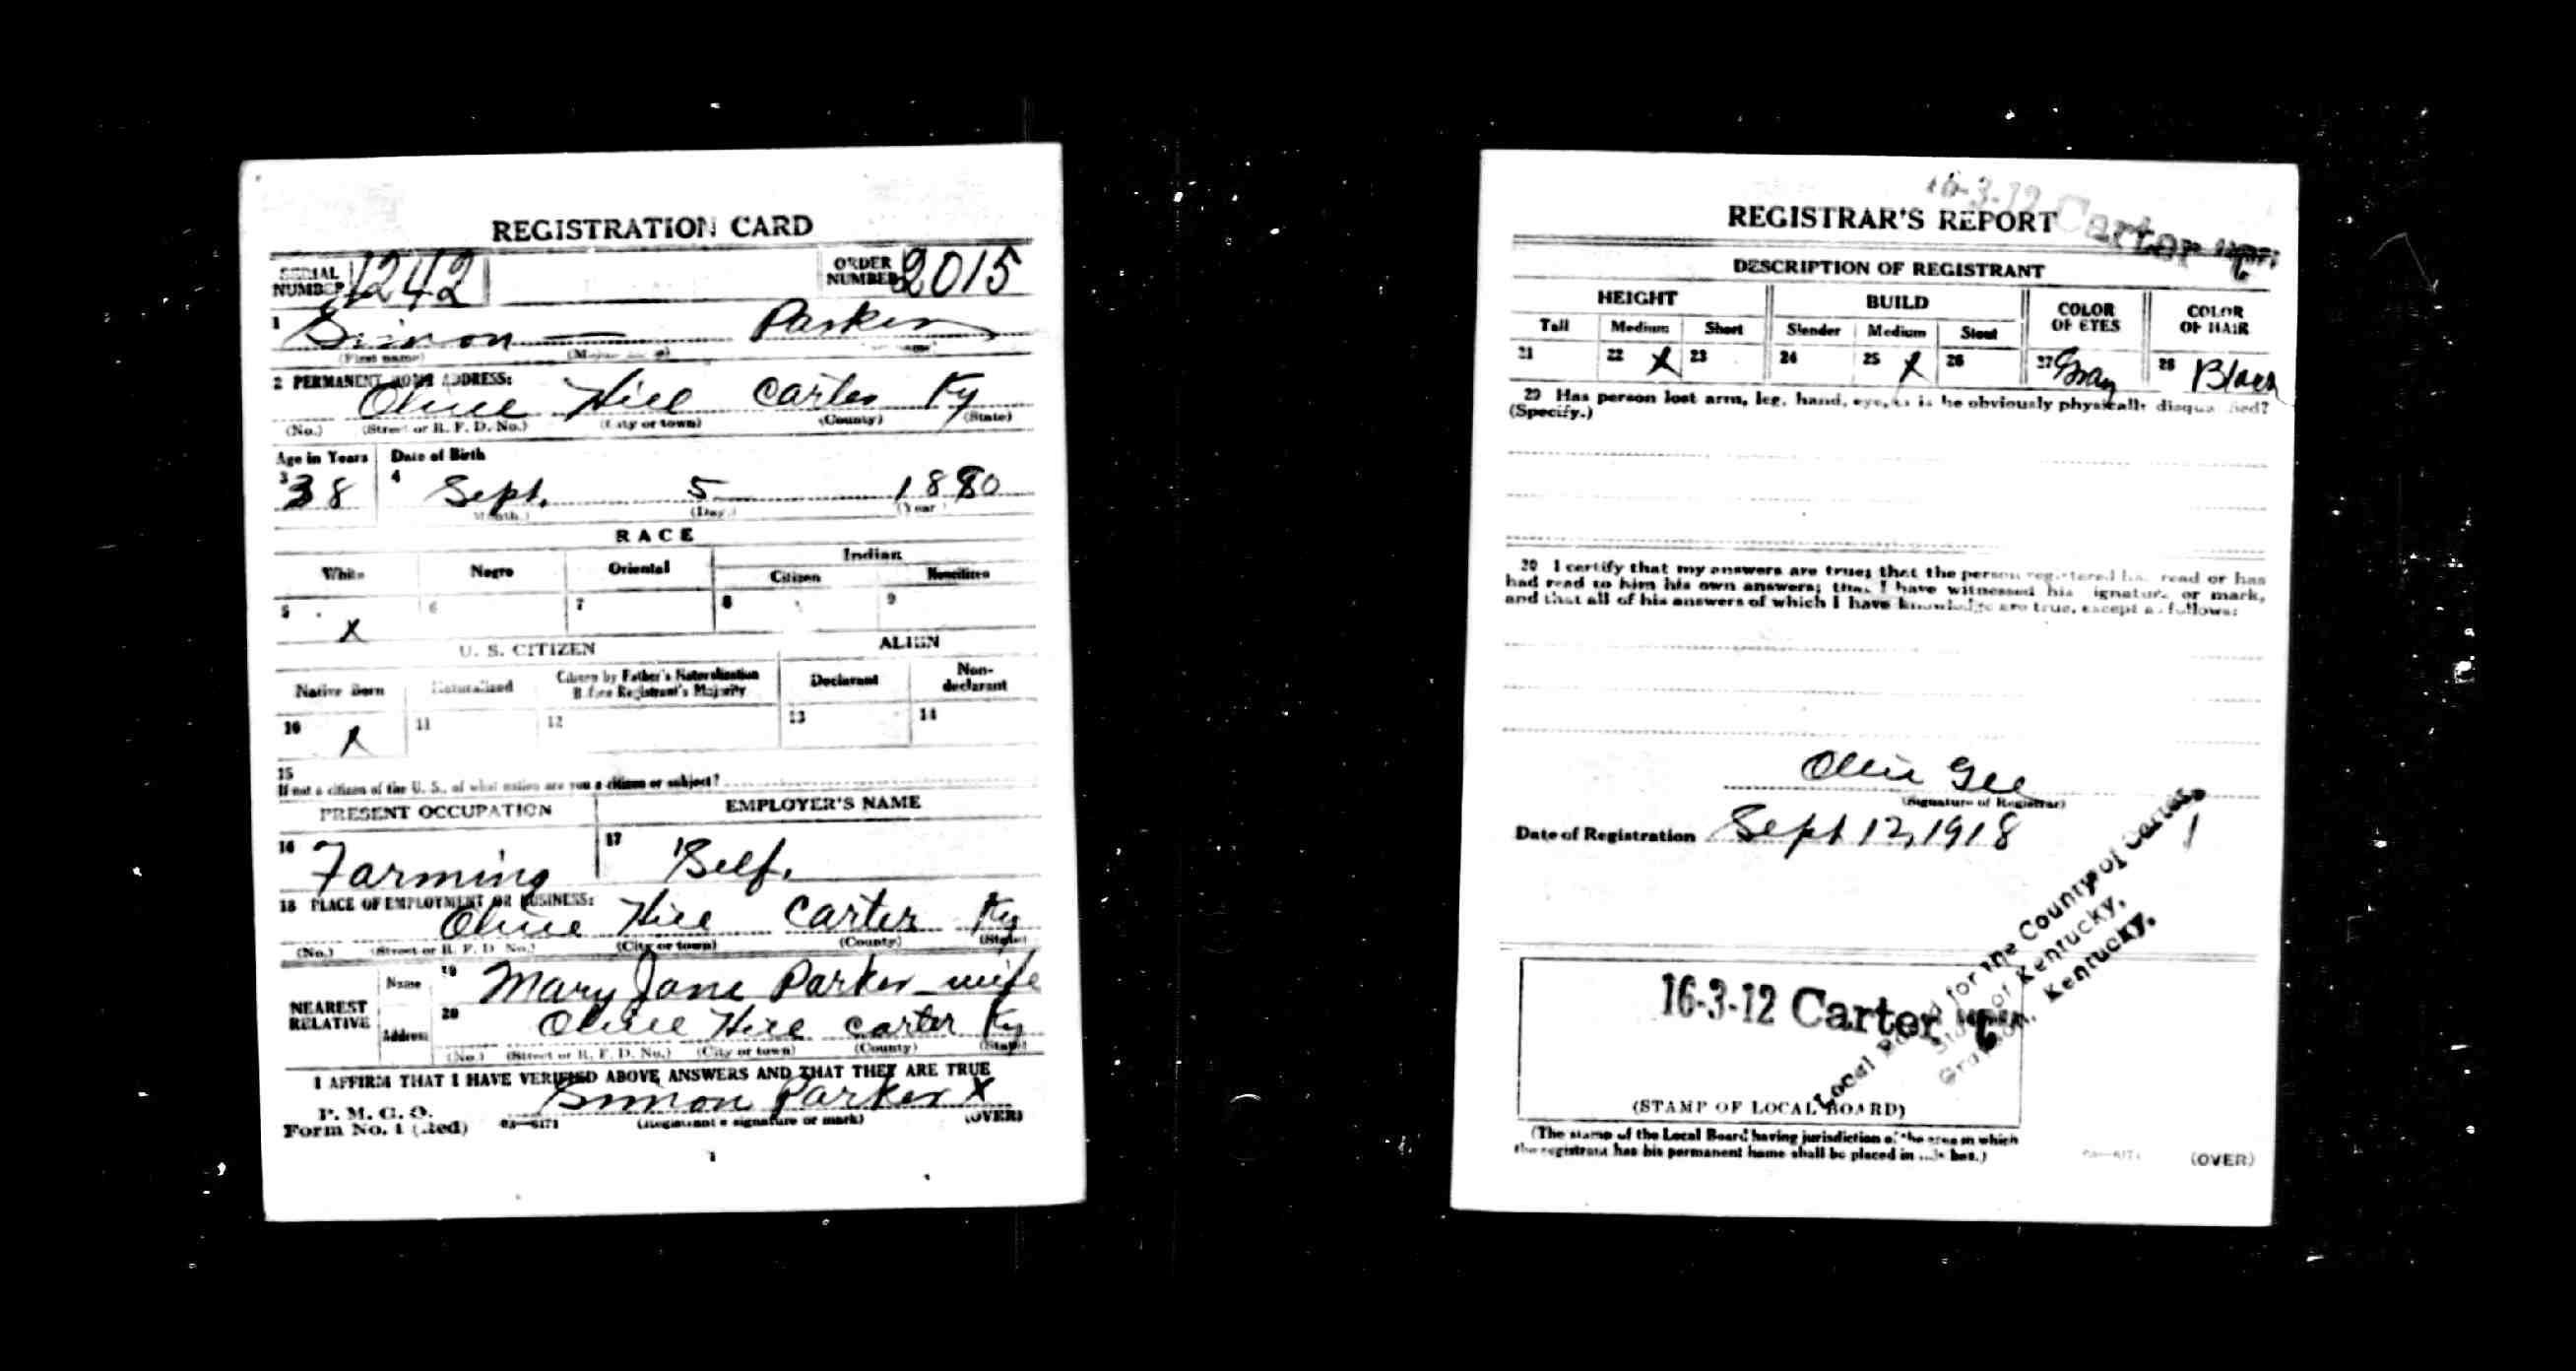 REGISTRATION CARD
SERIAL NUMBER 1242 ORDER NUMBER 2015
1 Simon — Parker
(First name)
2 PERMANENT HOME ADDRESS:
Olive Hill Carter Ky
(No.) (Street or R. F. D. No.) (City or town) (County) (State)
Age in Years Date of Birth
3 38 4 Sept. 5 1880
(Month.) (Day.) (Year.)
RACE
White Negro Oriental Indian
Citizen Noncitizen
5 X 6 7 8 9
U. S. CITIZEN ALIEN
Native Born Naturalized Citizen by Father's Naturalization Before Registrant's Majority Declarant Non-declarant
10 X 11 12 13 14
15
If not a citizen of the U. S., of what nation are you a citizen or subject?
PRESENT OCCUPATION EMPLOYER'S NAME
16 Farming 17 Self.
18 PLACE OF EMPLOYMENT OR BUSINESS:
Olive Hill Carter Ky
(No.) (Street or R. F. D. No.) (City or town) (County) (State)
NEAREST RELATIVE
Name 19 Mary Jane Parker - wife
Address 20 Olive Hill Carter Ky
(No.) (Street or R. F. D. No.) (City or town) (County) (State)
I AFFIRM THAT I HAVE VERIFIED ABOVE ANSWERS AND THAT THEY ARE TRUE
Simon Parker X
P. M. G. O.
Form No. 1 (Red) 03—6171 (Registrant's signature or mark) (OVER)
16-3-12 Carter
REGISTRAR'S REPORT
DESCRIPTION OF REGISTRANT
HEIGHT BUILD COLOR OF EYES COLOR OF HAIR
Tall Medium Short Slender Medium Stout
21 22 X 23 24 25 X 26 27 Gray 28 Black
29 Has person lost arm, leg, hand, eye, or is he obviously physically disqualified?
(Specify.)
30 I certify that my answers are true; that the person registered has read or has
had read to him his own answers; that I have witnessed his signature or mark,
and that all of his answers of which I have knowledge are true, except as follows:
Ollie Gee
(Signature of Registrar)
Date of Registration Sept 12, 1918
Local Board for the County of Carter,
State of Kentucky,
Grayson, Kentucky.
16-3-12 Carter
(STAMP OF LOCAL BOARD)
(The stamp of the Local Board having jurisdiction of the area in which
the registrant has his permanent home shall be placed in this box.)
03—6171 (OVER)